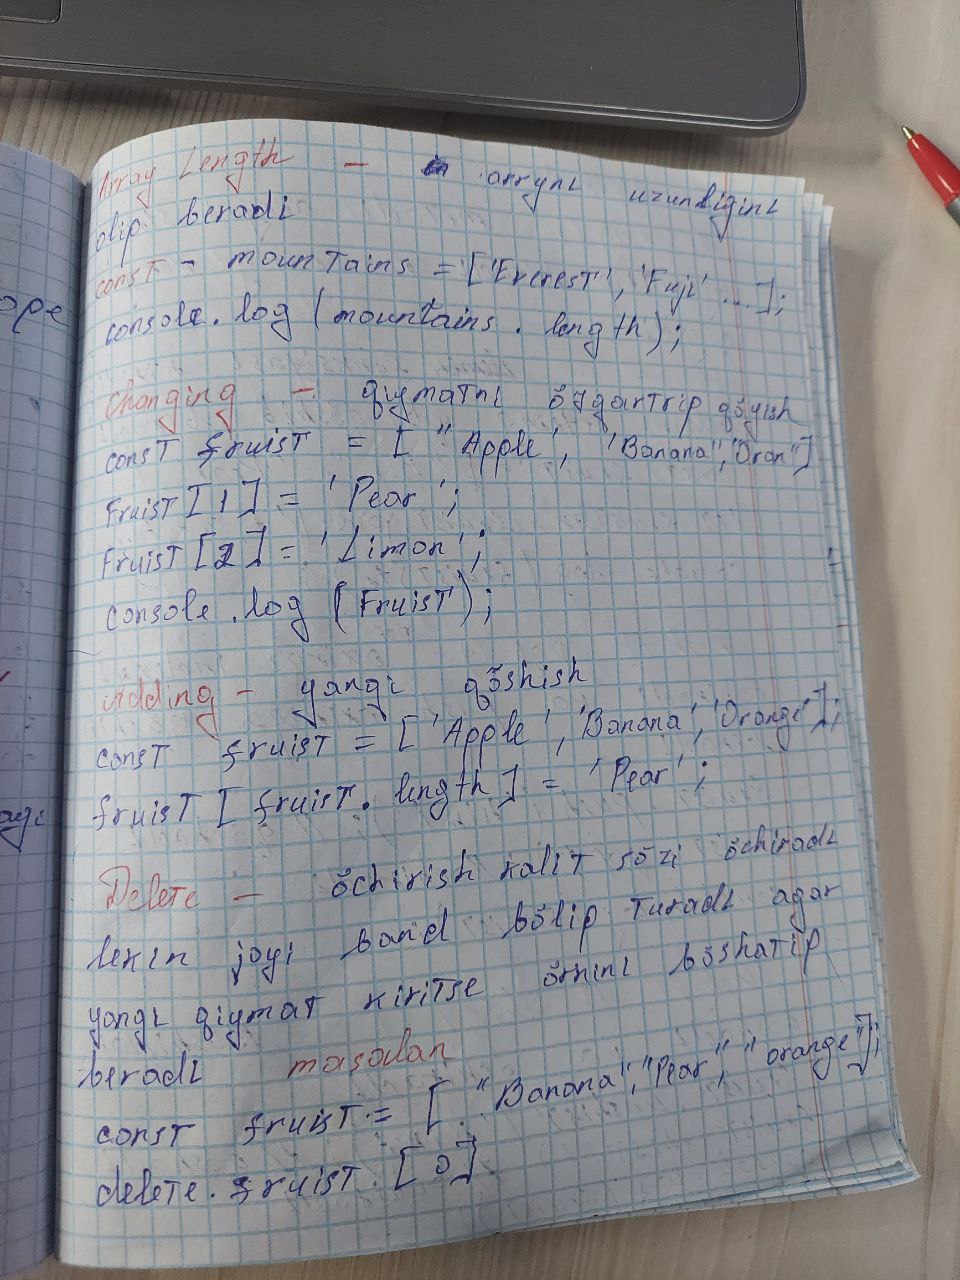 Array Length - arryni uzunligini
olip beradi
const - mountains = ['Everest', 'Fuji' ...];
console.log (mountains.length);
Changing - qiymatni õzgartrip qõyish
const fruist = ["Apple', 'Banana", 'Oran"]
Fruist [1] = 'Pear';
Fruist [2] = 'Limon';
console.log (Fruist);
Adding - yangi qõshish
const fruist = ['Apple', 'Banana', 'Orange'];
fruist [fruist.length] = 'Pear';
Delete - õchirish kalit sõzi õchiradi
lekin joyi band bõlip turadi agar
yangi qiymat kiritse õrnini bõshatip
beradi masalan
const fruist = ["Banana", "Pear", "orange"];
delete.fruist.[0]
ope
agi